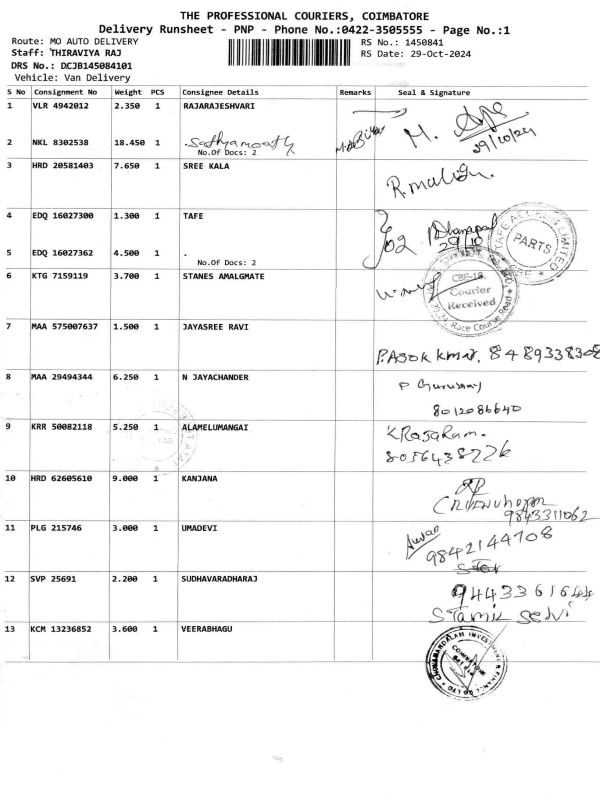 THE PROFESSIONAL COURIERS, COIMBATORE
Delivery Runsheet - PNP - Phone No.:0422-3505555 - Page No.:1
Route: MO AUTO DELIVERY RS No.: 1450841
Staff: THIRAVIYA RAJ RS Date: 29-Oct-2024
DRS No.: DCJB145084101
Vehicle: Van Delivery
S No Consignment No Weight PCS Consignee Details Remarks Seal & Signature
1 VLR 4942012 2.350 1 RAJARAJESHVARI
29/10/24
2 NKL 8302538 18.450 1 Sathyamoorthy
No.Of Docs: 2
3 HRD 20581403 7.650 1 SREE KALA
R.malign.
4 EDQ 16027300 1.300 1 TAFE
Dhanapal
29/10
PARTS
5 EDQ 16027362 4.500 1 .
No.Of Docs: 2
6 KTG 7159119 3.700 1 STANES AMALGMATE
CBE-18
Courier
Received
Race Course Road
7 MAA 575007637 1.500 1 JAYASREE RAVI
P.Asok kmar. 8489338308
8 MAA 29494344 6.250 1 N JAYACHANDER
8012086640
9 KRR 50082118 5.250 1 ALAMELUMANGAI
K Rajaram.
8056438226
10 HRD 62605610 9.000 1 KANJANA
9843311062
11 PLG 215746 3.000 1 UMADEVI
9842144708
12 SVP 25691 2.200 1 SUDHAVARADHARAJ
S.Tamil Selvi
13 KCM 13236852 3.600 1 VEERABHAGU
CHOLAMANDALAM INVESTMENT & FINANCE CO LTD